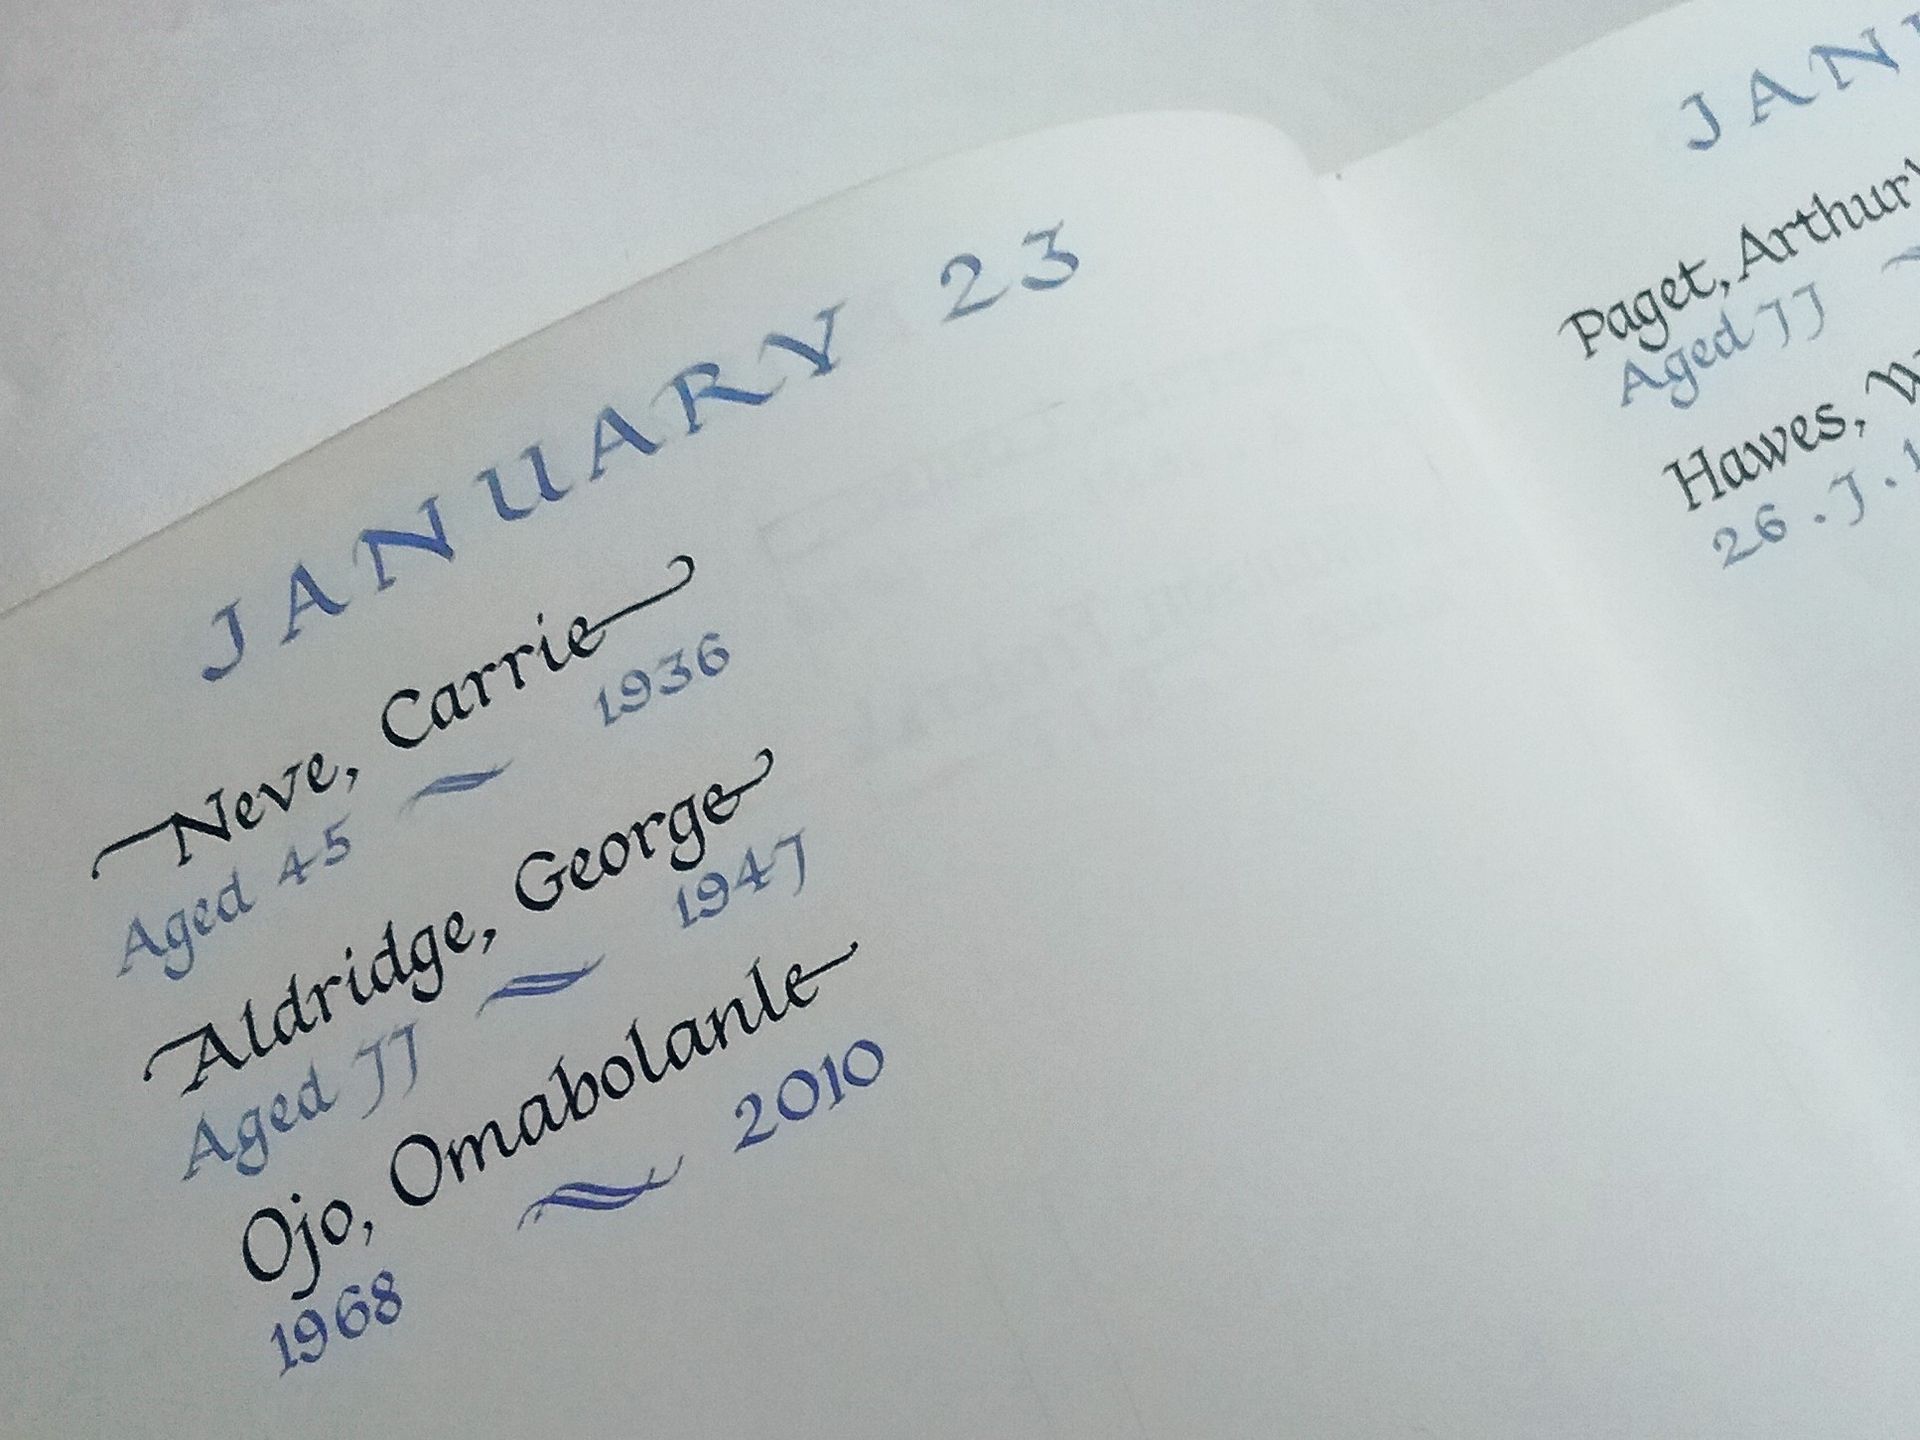 JANUARY 23
Neve, Carrie
Aged 45 1936
Aldridge, George
Aged 77 1947
Ojo, Omabolanle
1968 2010
Paget, Arthur
Aged 77
Hawes,
26.7.1